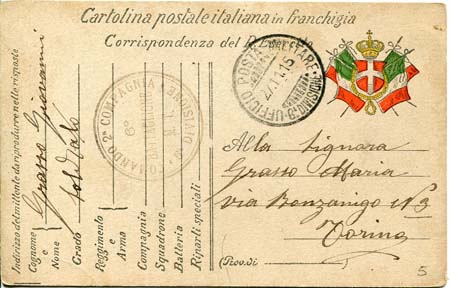 Cartolina postale italiana in franchigia
Corrispondenza del R. Esercito
Indirizzo del mittente da riprodurre nelle risposte
Cognome e Nome
Grasso Giovanni
Grado
soldato
Reggimento e Arma
Compagnia
Squadrone
Batteria
Riparti speciali
COMANDO 2ª COMPAGNIA
6°
UFFICIO POSTA MILITARE
27.11.15
Alla Signora
Grasso Maria
via Bonzanigo N 3
Torino
(Prov. di
5